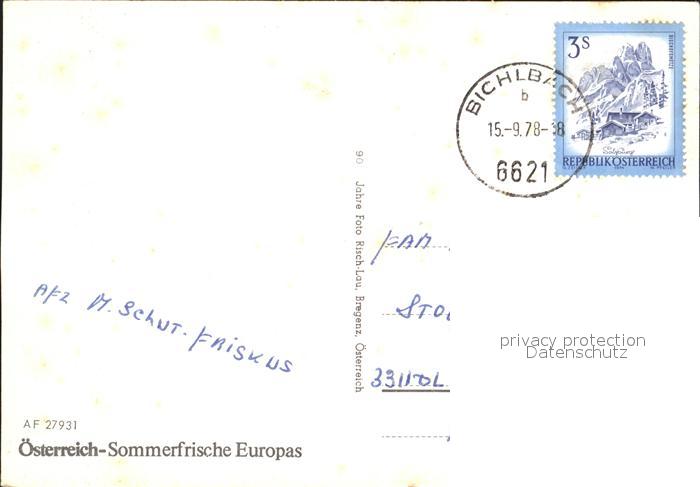 3S
BISCHOFSMÜTZE
Salzburg
REPUBLIK ÖSTERREICH
BICHLBACH
b
15.-9.78-18
6621
90 Jahre Foto Risch-Lau, Bregenz, Österreich
FAM
STO
3311
AFZ M. SCHUT. FRISKUS
privacy protection
Datenschutz
AF 27931
Österreich-Sommerfrische Europas